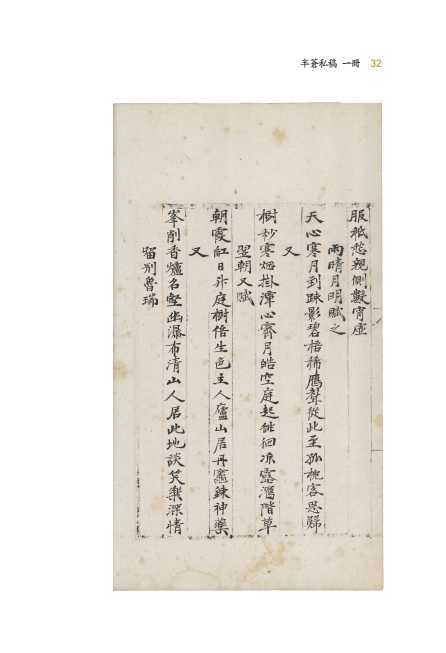 半蒼私稿 一冊 32
服祇慈親側數宵虛
雨晴月明賦之
天心寒月到踈影碧梧稀鴈聲從此至孤枕客思歸
又
樹杪寒烟掛潭心霽月皓空庭起徘徊凉露濕階草
翌朝又賦
朝霞紅日升庭樹倍生色主人廬山居丹竈鍊神藥
又
峯削香爐名壑幽瀑布清山人居此地談笑樂深情
留別魯瑞